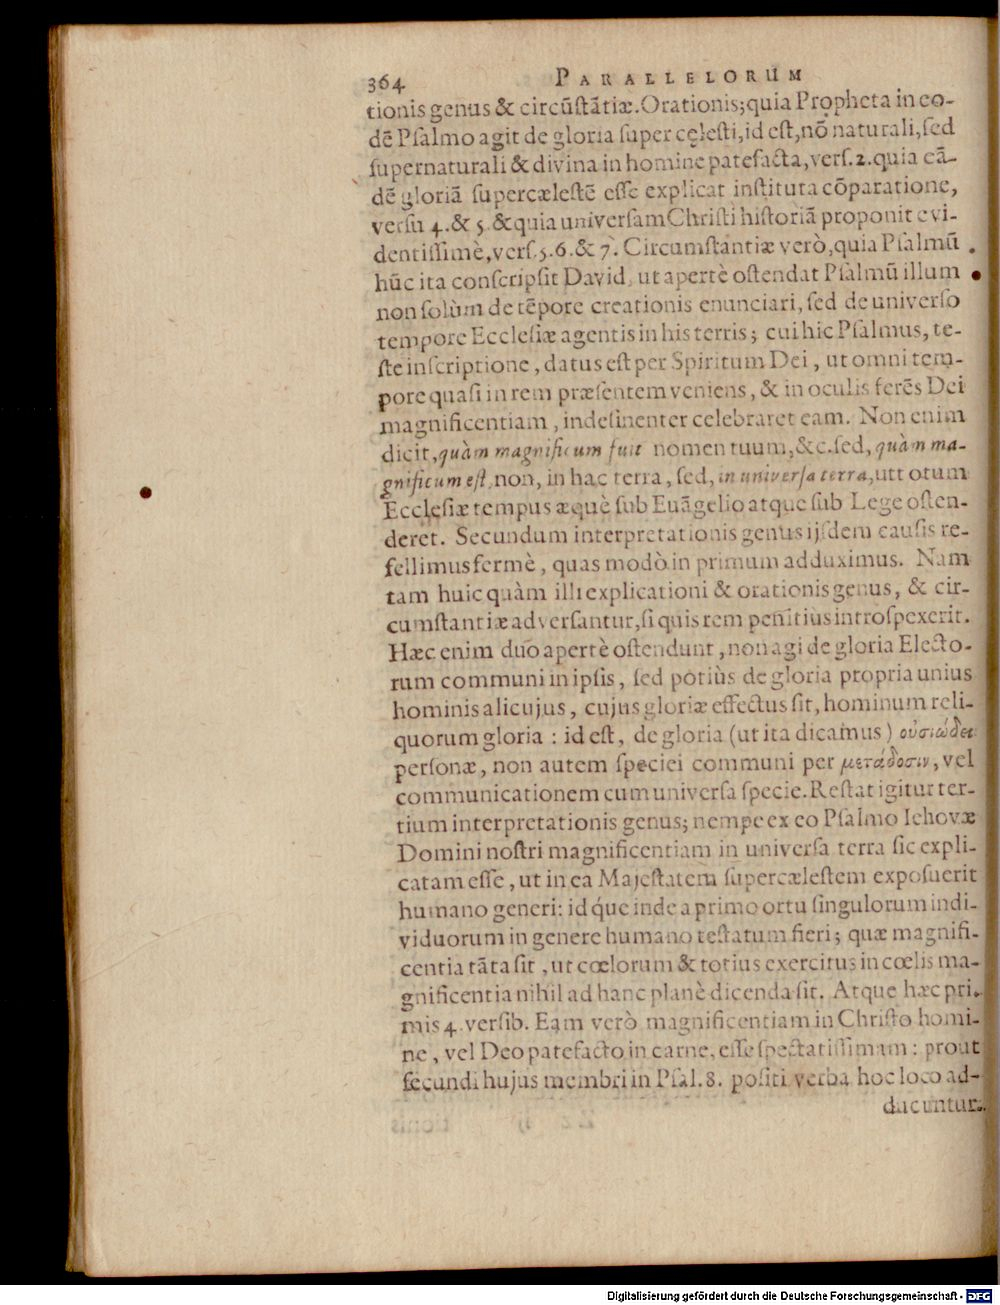 364 PARALLELORUM
tionis genus & circũſtãtiæ. Orationis; quia Propheta in eo-
dẽ Pſalmo agit de gloria ſuper cęleſti, id eſt, nõ naturali, ſed
ſupernaturali & divina in homine patefacta, verſ. 2. quia eã-
dẽ gloriã ſupercæleſtẽ eſſe explicat inſtituta cõparatione,
verſu 4. & 5. & quia univerſam Chriſti hiſtoriã proponit evi-
dentiſſimè, verſ. 5. 6. & 7. Circumſtantiæ verò, quia Pſalmũ
hũc ita conſcripſit David, ut apertè oſtendat Pſalmũ illum
non ſolùm de tẽpore creationis enunciari, ſed de univerſo
tempore Eccleſiæ agentis in his terris; cui hic Pſalmus, te-
ſte inſcriptione, datus eſt per Spiritum Dei, ut omni tem-
pore quaſi in rem præſentem veniens, & in oculis ferẽs Dei
magnificentiam, indeſinenter celebraret eam. Non enim
dicit, quàm magnificum fuit nomen tuum, &c. ſed, quàm ma-
gnificum eſt, non, in hac terra, ſed, in univerſa terra, utt otum
Eccleſiæ tempus æquè ſub Euãgelio atque ſub Lege oſten-
deret. Secundum interpretationis genus ijſdem cauſis re-
fellimus fermè, quas modò in primum adduximus. Nam
tam huic quàm illi explicationi & orationis genus, & cir-
cumſtantiæ adverſantur, ſi quis rem penitiùs introſpexerit.
Hæc enim duo apertè oſtendunt, non agi de gloria Electo-
rum communi in ipſis, ſed potiùs de gloria propria unius
hominis alicujus, cujus gloriæ effectus ſit, hominum reli-
quorum gloria : id eſt, de gloria (ut ita dicamus) οὐσιώδει
perſonæ, non autem ſpeciei communi per μετάδοσιν, vel
communicationem cum univerſa ſpecie. Reſtat igitur ter-
tium interpretationis genus; nempe ex eo Pſalmo Iehovæ
Domini noſtri magnificentiam in univerſa terra ſic expli-
catam eſſe, ut in ea Majeſtatem ſupercæleſtem expoſuerit
humano generi: id q́ue inde a primo ortu ſingulorum indi-
viduorum in genere humano teſtatum fieri; quæ magnifi-
centia tãta ſit, ut cœlorum & totius exercitus in cœlis ma-
gnificentia nihil ad hanc planè dicenda ſit. Atque hæc pri-
mis 4. verſib. Eam verò magnificentiam in Chriſto homi-
ne, vel Deo patefacto in carne, eſſe ſpectatiſſimam : prout
ſecundi hujus membri in Pſal. 8. poſiti verba hoc loco ad-
ducuntur.
Digitalisierung gefördert durch die Deutsche Forschungsgemeinschaft - DFG